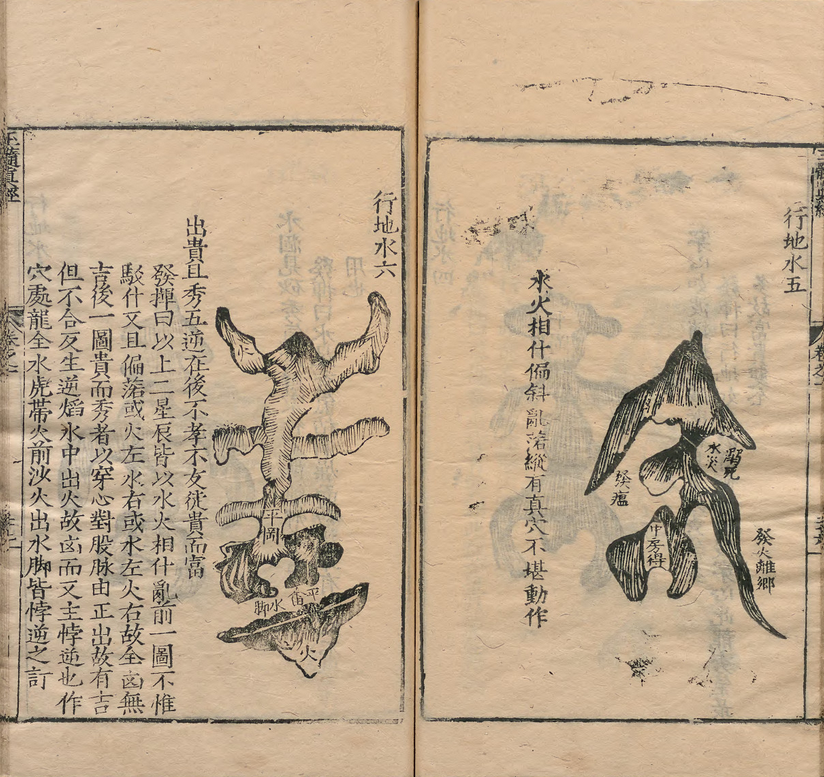 行地水五
發火離鄉
發瘟
水火相什偏斜亂落縱有真穴不堪動作
行地水六
平岡
水脚
火
出貴且秀五逆在後不孝不友徒貴而富
發揮曰以上二星辰皆以水火相什亂前一圖不惟
駁什又且偏落或火左水右或水左火右故全凶無
吉後一圖貴而秀者以穿心對股脉由正出故有吉
但不合反生逆焰水中出火故凶而又主悖逆也作
穴處龍全水虎帶火前沙火出水脚皆悖逆之訂
髓真經